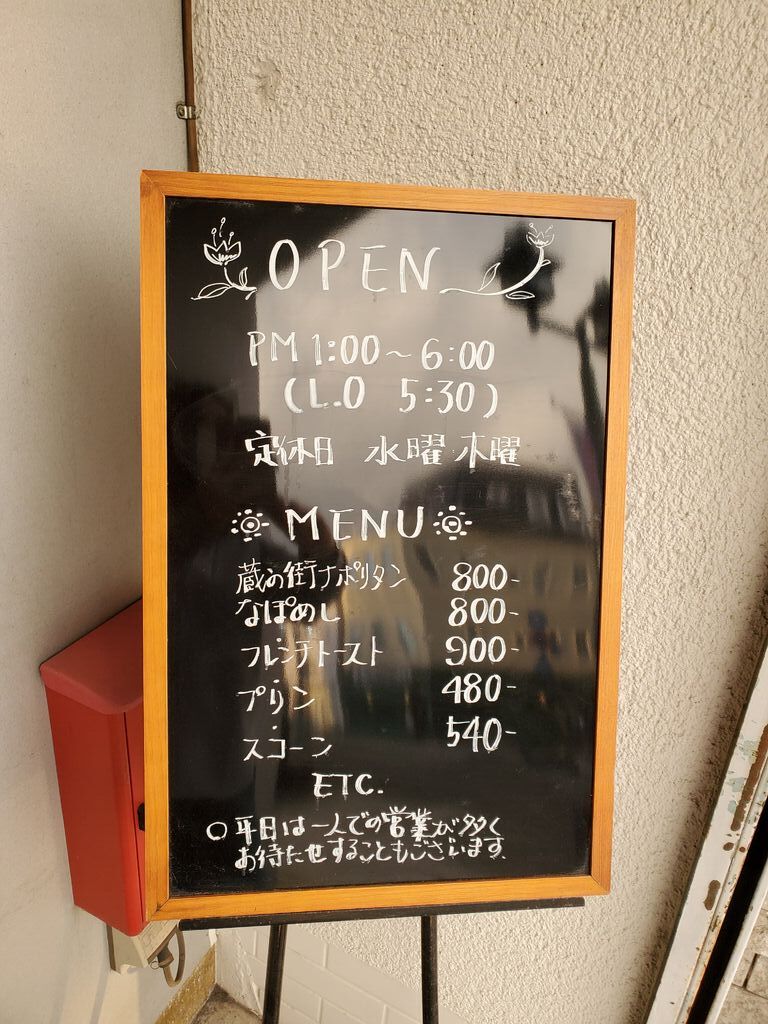 OPEN
PM 1:00～6:00
(L.O 5:30)
定休日 水曜 木曜
MENU
蔵の街ナポリタン 800-
なぽめし 800-
フレンチトースト 900-
プリン 480-
スコーン 540-
ETC.
○ 平日は一人での営業が多く
お待たせすることもございます。